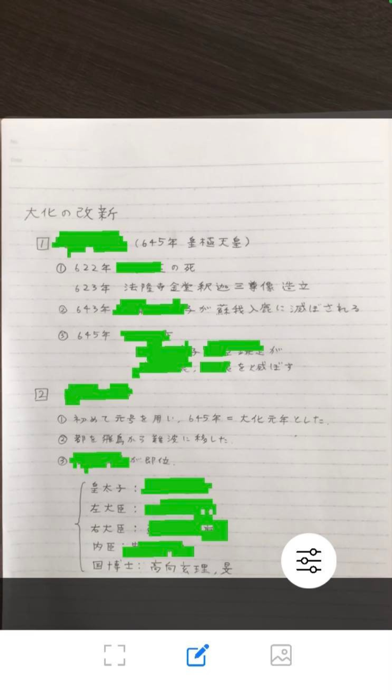 大化の改新
1 (645年 皇極天皇)
① 622年 の死
623年 法隆寺金堂釈迦三尊像 造立
② 643年 が 蘇我入鹿に 滅ぼされる
③ 645年
が
を滅ぼす
2
① 初めて元号を用い、645年=大化元年とした.
② 都を飛鳥から難波に移した
③ が即位.
皇太子:
左大臣:
右大臣:
内臣:
国博士: 高向玄理, 旻